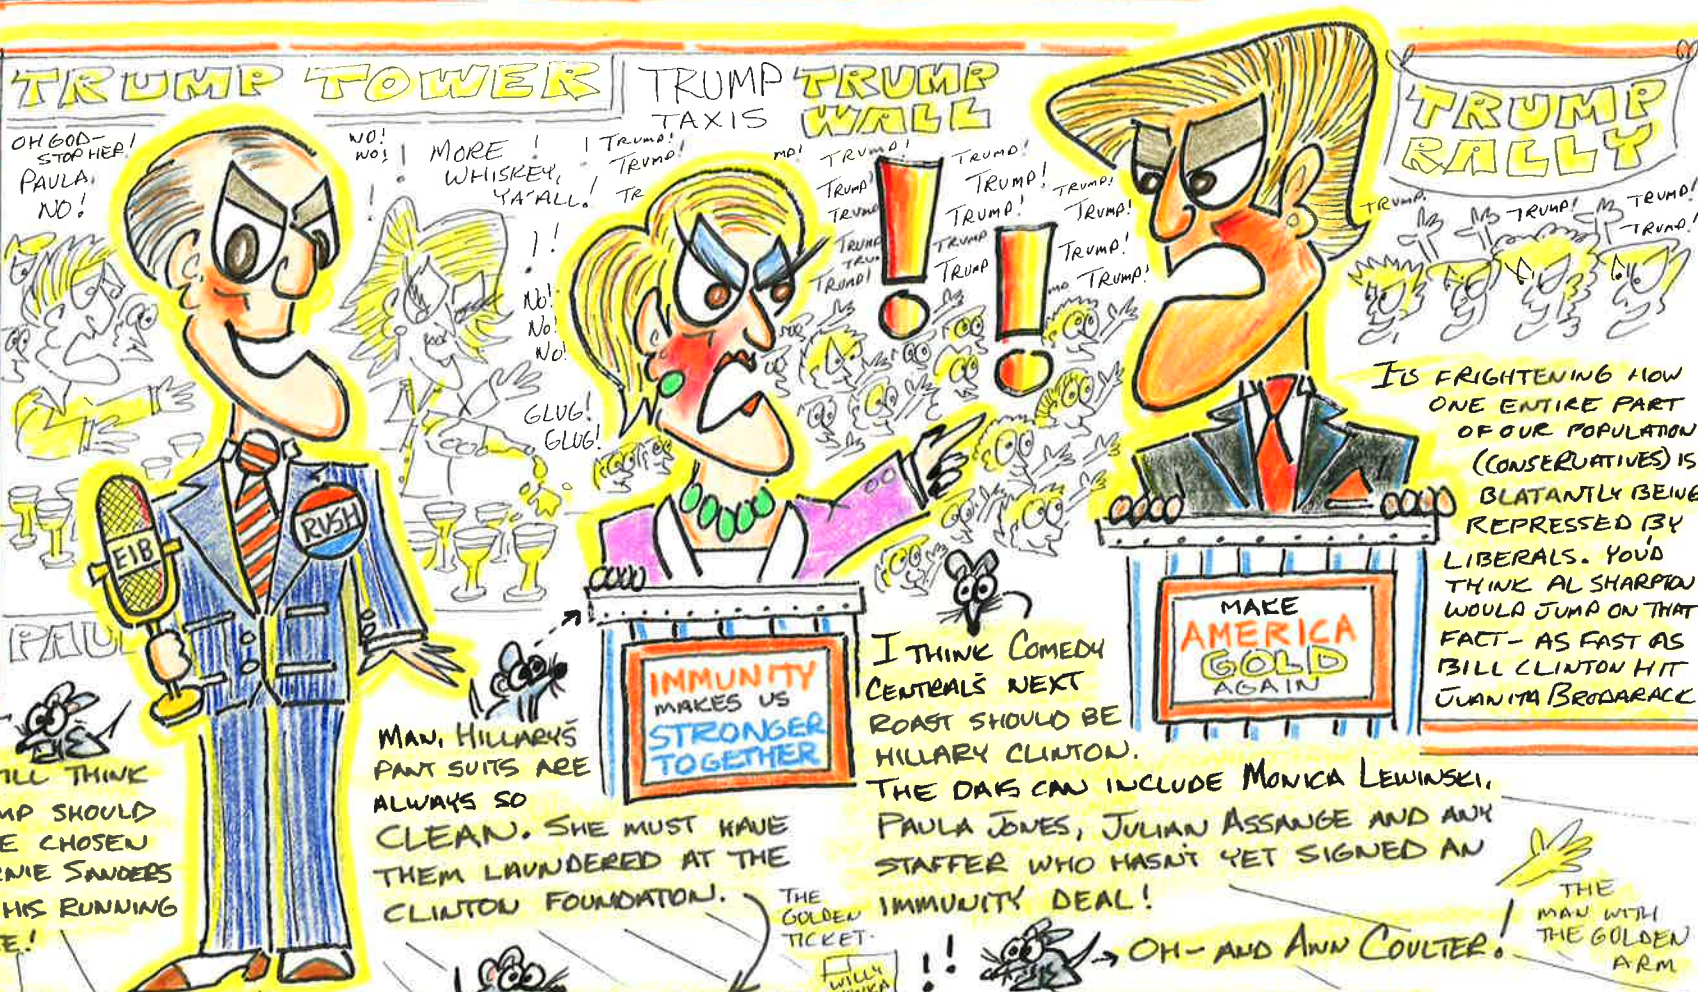 TRUMP TOWER
TRUMP
TAXIS
TRUMP
WALL
TRUMP
RALLY
OH GOD-
STOP HER!
PAULA,
NO!
NO!
NO!
MORE
WHISKEY,
YA'ALL!
TRUMP!
TRUMP!
TR
TRUMP!
TRUMP!
TRUMP
TRUMP
TRUMP!
TRUMP!
TRUMP!
TRUMP!
TRUMP
TRUMP
TRUMP!
TRUMP!
TRUMP!
TRUMP!
TRUMP!
TRUMP!
TRUMP!
TRUMP!
NO!
NO!
NO!
GLUG!
GLUG!
RUSH
EIB
PAU
IMMUNITY
MAKES US
STRONGER
TOGETHER
MAKE
AMERICA
GOLD
AGAIN
ITS FRIGHTENING HOW
ONE ENTIRE PART
OF OUR POPULATION
(CONSERVATIVES) IS
BLATANTLY BEING
REPRESSED BY
LIBERALS. YOU'D
THINK AL SHARPTON
WOULD JUMP ON THAT
FACT- AS FAST AS
BILL CLINTON HIT
JUANITA BRODARACK
ILL THINK
MP SHOULD
E CHOSEN
RNIE SANDERS
HIS RUNNING
E!
MAN, HILLARY'S
PANT SUITS ARE
ALWAYS SO
CLEAN. SHE MUST HAVE
THEM LAUNDERED AT THE
CLINTON FOUNDATION.
I THINK COMEDY
CENTRAL'S NEXT
ROAST SHOULD BE
HILLARY CLINTON.
THE DAIS CAN INCLUDE MONICA LEWINSKI,
PAULA JONES, JULIAN ASSANGE AND ANY
STAFFER WHO HASN'T YET SIGNED AN
IMMUNITY DEAL!
OH- AND ANN COULTER!
THE
GOLDEN
TICKET.
WILLY
THE
MAN WITH
THE GOLDEN
ARM